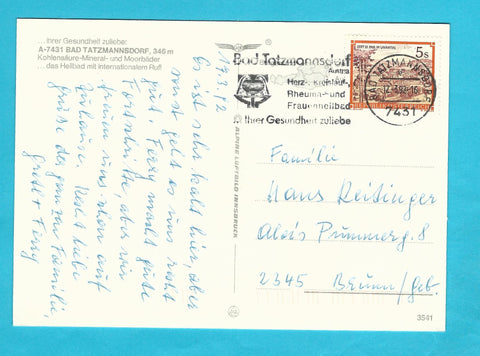 ...Ihrer Gesundheit zuliebe:
A-7431 BAD TATZMANNSDORF, 346 m
Kohlensäure-Mineral- und Moorbäder
... das Heilbad mit internationalem Ruf!
Bad Tatzmannsdorf
Austria
Herz-, Kreislauf-,
Rheuma- und
Frauenheilbad
Ihrer Gesundheit zuliebe
BAD TATZMANNSDORF
7431
5s
ALPINE LUFTBILD INNSBRUCK
Es ist sehr kalt hier, aber
sonst geht es uns recht
gut. Ferry macht gute
Fortschritte, aber wir
freuen uns schon auf
zuhause. Recht liebe
Grüße der ganzen Familie,
Gretl + Ferry
Familie
Hans Reitinger
Alois Pummerg. 8
2345 Brunn/Geb.
3541